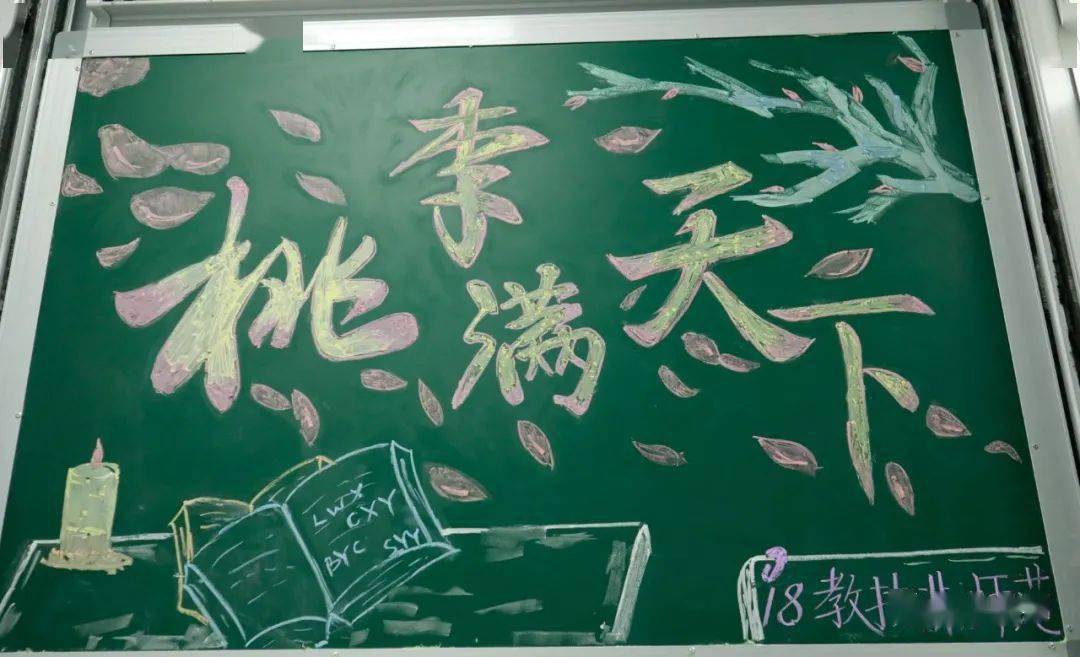 桃李满天下
LWX
CXY
BYC SYY
18教技